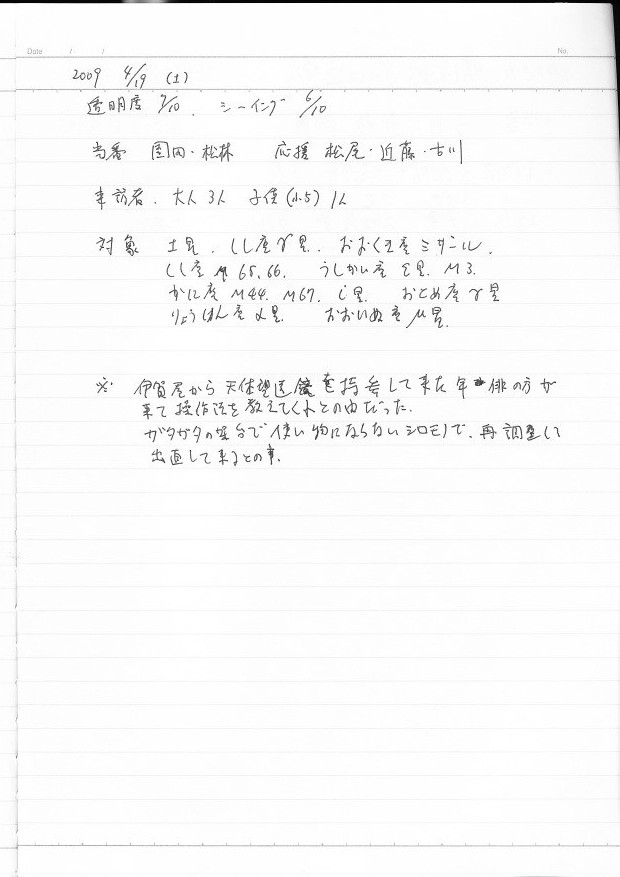 Date / / No.
2009 4/19 (土)
透明度 7/10. シーイング 6/10
当番 園田・松林 応援 松尾・近藤・古川
来訪者. 大人3人 子供(小5)1人
対象 土星. しし座γ星. おおくま座ミザール.
しし座M65,66. うしかい座ε星. M3.
かに座M44. M67. ι星. おとめ座γ星
りょうけん座α星. おおいぬ座μ星.
※ 伊賀屋から天体望遠鏡を持参して来た年輩の方が
来て操作法を教えてくれとの由だった.
ガタガタの架台で使い物にならないシロモノで、再調整して
出直して来るとの事.